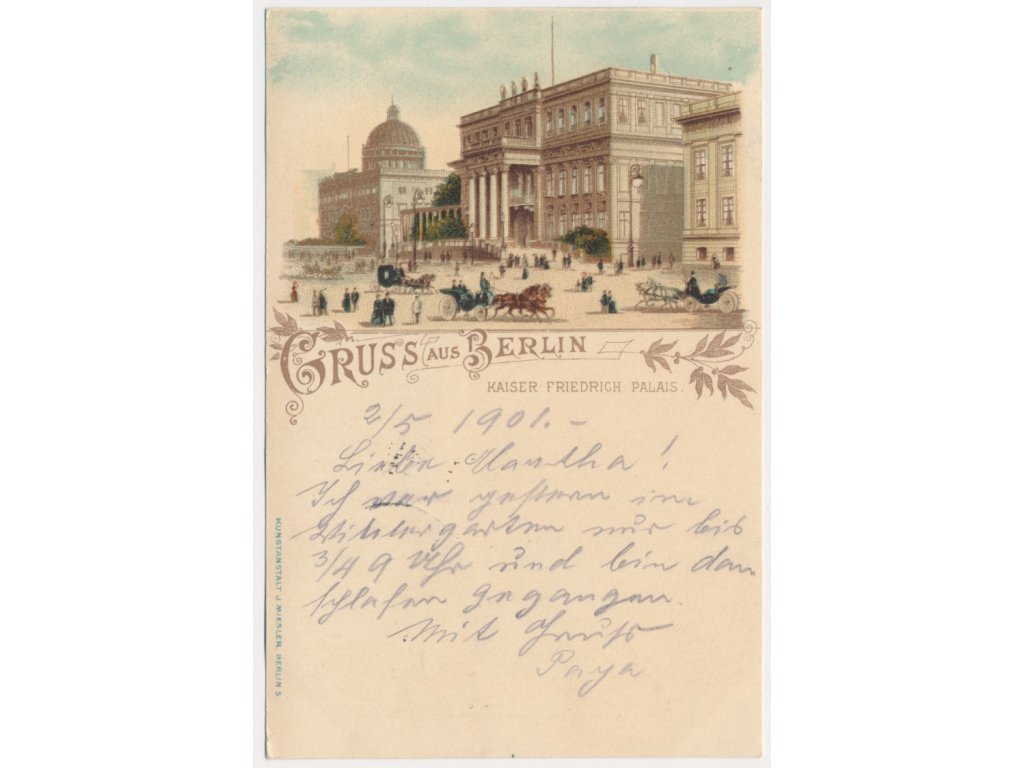 GRUSS AUS BERLIN
KAISER FRIEDRICH PALAIS.
2/5 1901. -
Liebe Martha!
Ich war gestern im
Wintergarten nur bis
3/4 9 Uhr und bin dann
schlafen gegangen.
Mit Gruß
Papa
KUNSTANSTALT J. MIESLER, BERLIN S.